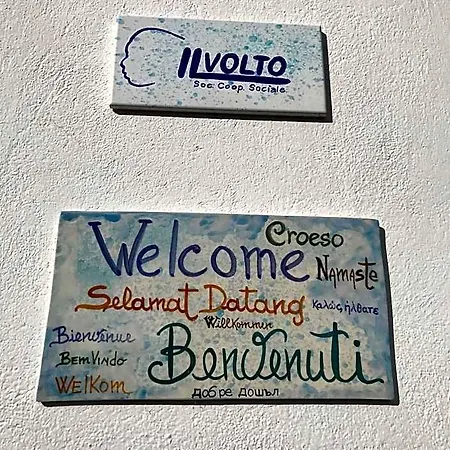 ILVOLTO
Soc. Coop. Sociale
Welcome
Croeso
Namaste
Selamat Datang
καλώς ήλθατε
Willkommen
Bienvenue
Benvenuti
BemVindo
Welkom
добре дошъл